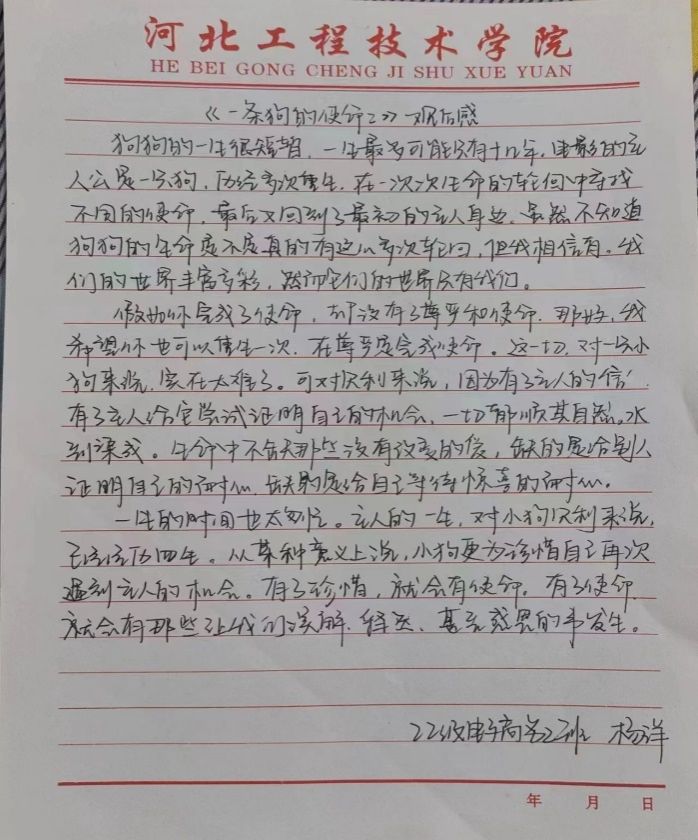 河北工程技术学院
HE BEI GONG CHENG JI SHU XUE YUAN
《一条狗的使命2》观后感
狗狗的一生很短暂，一生最多可能只有十几年，电影的主
人公是一只狗，历经多次重生，在一次次生命的轮回中寻找
不同的使命，最后又回到了最初的主人身边，虽然不知道
狗狗的生命是不是真的有这么多次轮回，但我相信有。我
们的世界丰富多彩，然而它们的世界只有我们。
假如你完成了使命，却没有了尊严和使命，那好，我
希望你也可以重生一次，在尊严是完成使命。这一切，对一只小
狗来说，实在太难了。可对贝利来说，因为有了主人的信，
有了主人给它尝试证明自己的机会，一切都顺其自然，水
到渠成。生命中不缺那些没有改变的信，缺的是给别人
证明自己的耐心，缺的是给自己等待惊喜的耐心。
一生的时间也太匆忙。主人的一生，对小狗贝利来说，
已经历四生。从某种意义上说，小狗更为珍惜自己再次
遇到主人的机会。有了珍惜，就会有使命，有了使命，
就会有那些让我们误解、释然、甚至感恩的事发生。
22级电子商务2班 杨洋
年 月 日